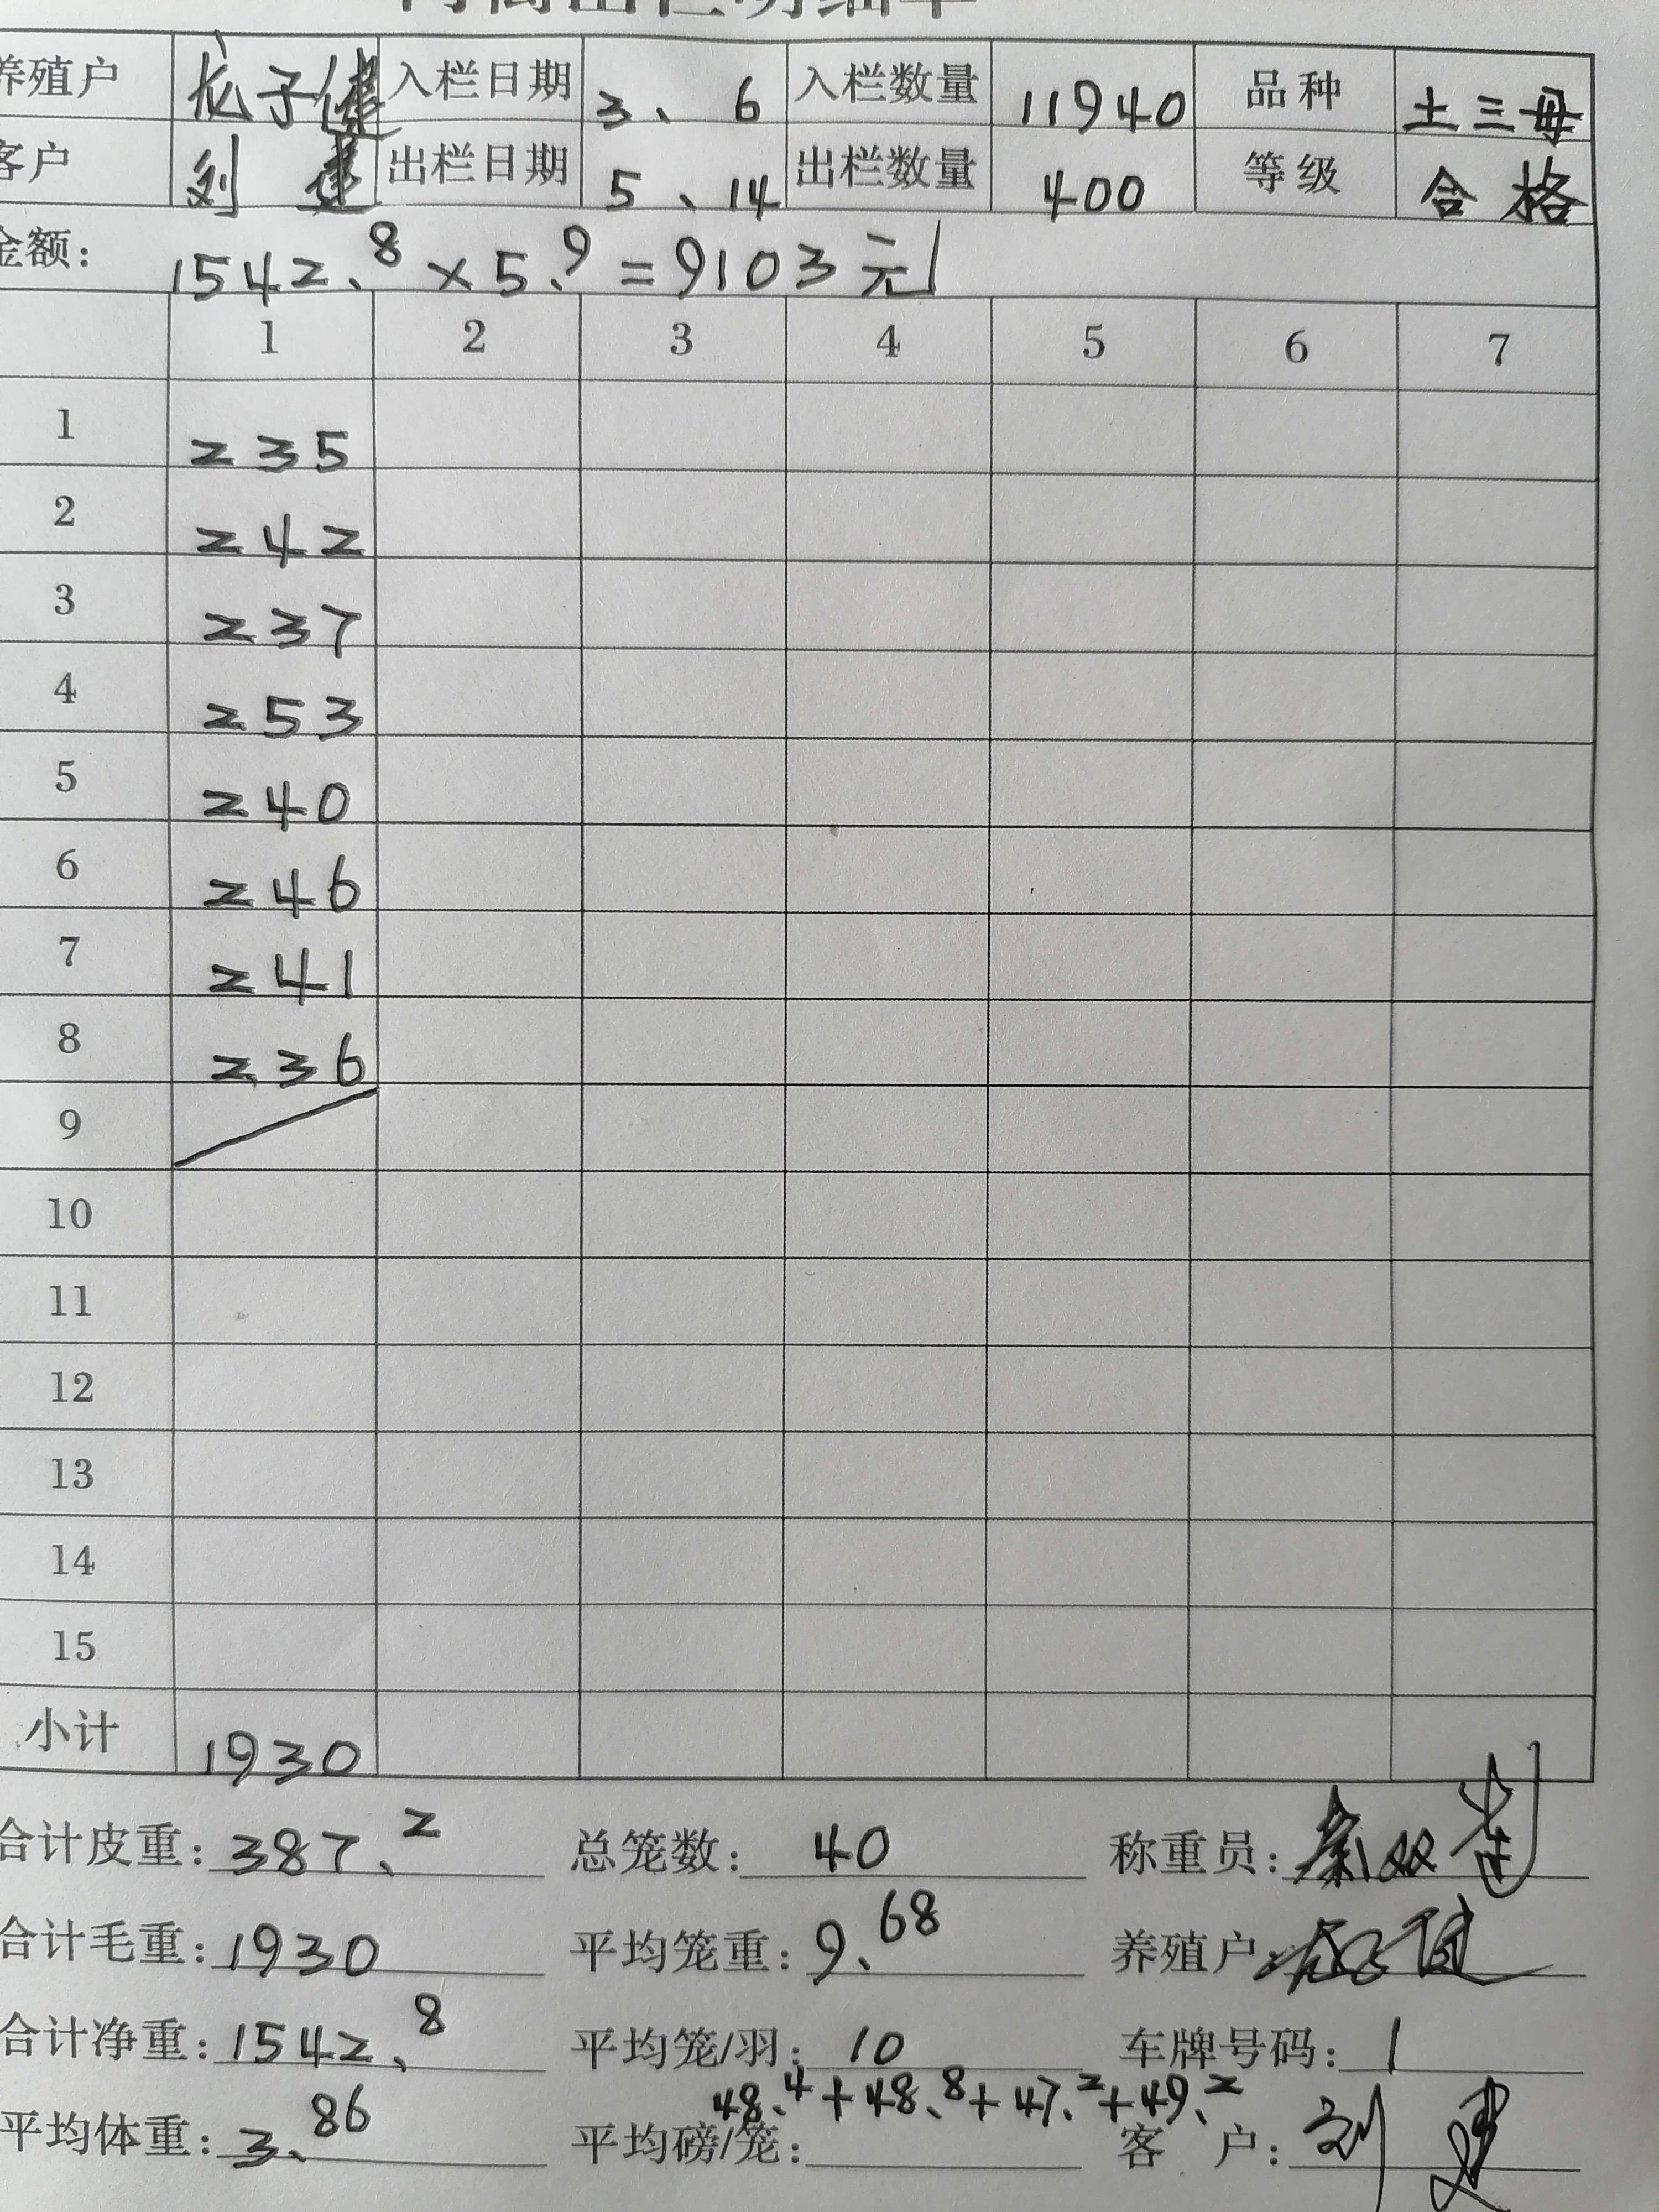 出栏明细单
养殖户 龙子健 入栏日期 3、6 入栏数量 11940 品种 土三母
客户 刘建 出栏日期 5、14 出栏数量 400 等级 合格
金额: 1542.8×5.9=9103元
1 2 3 4 5 6 7
1 235
2 242
3 237
4 253
5 240
6 246
7 241
8 236
9
10
11
12
13
14
15
小计 1930
合计皮重: 387.2 总笼数: 40 称重员:
合计毛重: 1930 平均笼重: 9.68 养殖户:
合计净重: 1542.8 平均笼/羽: 10 车牌号码: 1
48.4+48.8+47.2+49.2
平均体重: 3.86 平均磅/笼: 客户: 刘建